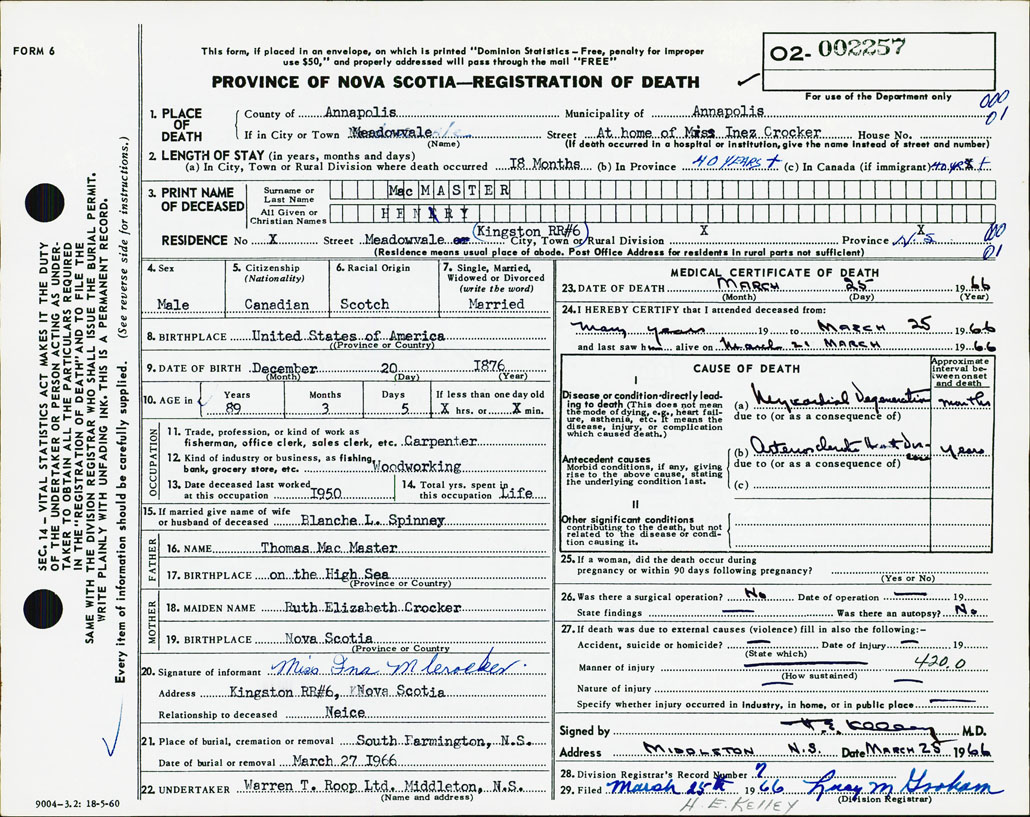 FORM 6
This form, if placed in an envelope, on which is printed "Dominion Statistics – Free, penalty for improper
use $50," and properly addressed will pass through the mail "FREE"
PROVINCE OF NOVA SCOTIA—REGISTRATION OF DEATH
O2- 002257
For use of the Department only
000
01
1. PLACE OF DEATH
County of Annapolis Municipality of Annapolis
If in City or Town Meadowvale Street At home of Miss Inez Crocker House No.
(Name) (If death occurred in a hospital or institution, give the name instead of street and number)
2. LENGTH OF STAY (in years, months and days)
(a) In City, Town or Rural Division where death occurred 18 Months (b) In Province 40 YEARS + (c) In Canada (if immigrant) 40 YRS +
3. PRINT NAME OF DECEASED
Surname or Last Name MacMASTER
All Given or Christian Names HENRY
RESIDENCE No X Street Meadowvale or (Kingston RR#6) City, Town or Rural Division X Province X N.S.
000
01
(Residence means usual place of abode. Post Office Address for residents in rural parts not sufficient)
4. Sex
Male
5. Citizenship
(Nationality)
Canadian
6. Racial Origin
Scotch
7. Single, Married,
Widowed or Divorced
(write the word)
Married
8. BIRTHPLACE United States of America
(Province or Country)
9. DATE OF BIRTH December 20 1876
(Month) (Day) (Year)
10. AGE in Years Months Days If less than one day old
89 3 5 X hrs. or X min.
OCCUPATION
11. Trade, profession, or kind of work as
fisherman, office clerk, sales clerk, etc. Carpenter
12. Kind of industry or business, as fishing,
bank, grocery store, etc. Woodworking
13. Date deceased last worked
at this occupation 1950
14. Total yrs. spent in
this occupation Life
15. If married give name of wife
or husband of deceased Blanche L. Spinney
FATHER
16. NAME Thomas Mac Master
17. BIRTHPLACE on the High Sea
(Province or Country)
MOTHER
18. MAIDEN NAME Ruth Elizabeth Crocker
19. BIRTHPLACE Nova Scotia
(Province or Country)
20. Signature of informant Miss Ina M Crocker
Address Kingston RR#6, Nova Scotia
Relationship to deceased Neice
21. Place of burial, cremation or removal South Farmington, N.S.
Date of burial or removal March 27 1966
22. UNDERTAKER Warren T. Roop Ltd. Middleton, N.S.
(Name and address)
MEDICAL CERTIFICATE OF DEATH
23. DATE OF DEATH MARCH 25 1966
(Month) (Day) (Year)
24. I HEREBY CERTIFY that I attended deceased from:
Many years 19 to MARCH 25 1966
and last saw h alive on 21 MARCH 1966
CAUSE OF DEATH
Approximate interval between onset and death
I
Disease or condition directly leading to death (This does not mean
the mode of dying, e.g., heart failure, asthenia, etc. It means the
disease, injury, or complication
which caused death.)
(a) Myocardial Degeneration months
due to (or as a consequence of)
Antecedent causes
Morbid conditions, if any, giving
rise to the above cause, stating
the underlying condition last.
(b) Heart Years
due to (or as a consequence of)
(c)
II
Other significant conditions
contributing to the death, but not
related to the disease or condition causing it.
25. If a woman, did the death occur during
pregnancy or within 90 days following pregnancy?
(Yes or No)
26. Was there a surgical operation? No Date of operation — 19
State findings — Was there an autopsy? No
27. If death was due to external causes (violence) fill in also the following:–
Accident, suicide or homicide? — Date of injury — 19
(State which)
Manner of injury — 420.0
(How sustained)
Nature of injury —
Specify whether injury occurred in industry, in home, or in public place —
Signed by H E Kelley M.D.
Address MIDDLETON N.S. Date MARCH 25 1966
28. Division Registrar's Record Number 7
29. Filed March 25th 1966 Lucy M Graham
(Division Registrar)
H. E. KELLEY
9004-3.2: 18-5-60
SEC. 14 – VITAL STATISTICS ACT MAKES IT THE DUTY
OF THE UNDERTAKER OR PERSON ACTING AS UNDER-
TAKER TO OBTAIN ALL THE PARTICULARS REQUIRED
IN THE "REGISTRATION OF DEATH" AND TO FILE THE
SAME WITH THE DIVISION REGISTRAR WHO SHALL ISSUE THE BURIAL PERMIT.
WRITE PLAINLY WITH UNFADING INK. THIS IS A PERMANENT RECORD.
Every item of information should be carefully supplied. (See reverse side for instructions.)